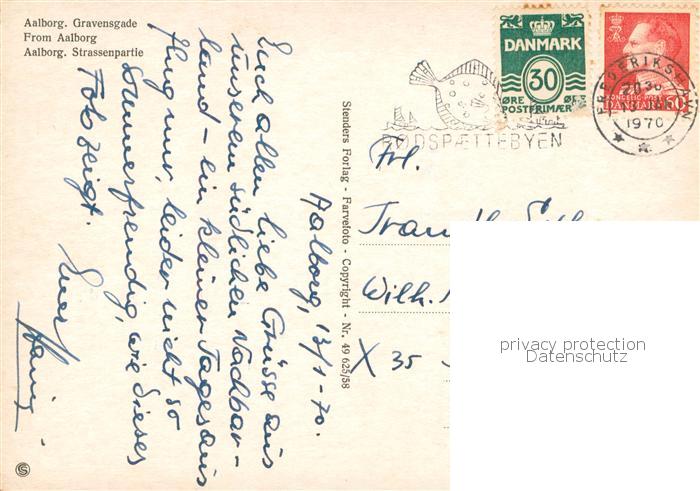 Aalborg. Gravensgade
From Aalborg
Aalborg. Strassenpartie
DANMARK
30
ØRE ØRE
POSTFRIMÆRKE
KONGELIG POST
DANMARK 60
FREDERIKSHAVN
1970
RØDSPÆTTEBYEN
Stenders Forlag - Farvefoto - Copyright - Nr. 49 625/58
Aalborg, 13/1-70.
Euch allen liebe Grüsse aus
unserem südlichen Nachbar-
land - ein kleiner Tagesaus
flug nur, leider nicht so
sommerfreudig, wie dieses
Foto zeigt.
Euer
Frl.
Wilh.
X 35
privacy protection
Datenschutz